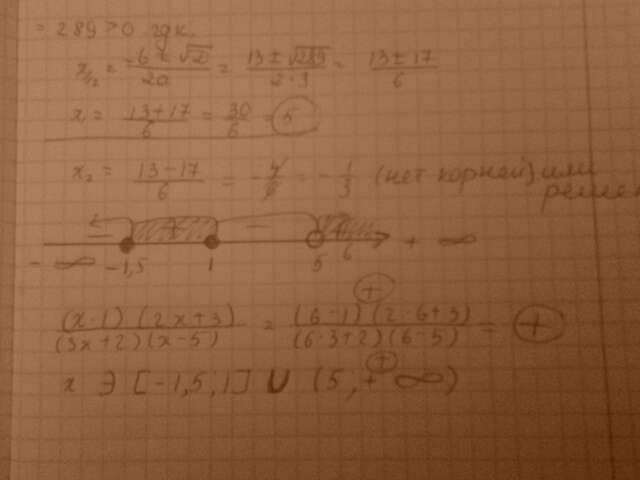 = 289 > 0 2 дк.
x₁/₂ = -b ± √D / 2a = 13 ± √289 / 2·3 = 13 ± 17 / 6
x₁ = 13+17 / 6 = 30 / 6 = 5
x₂ = 13-17 / 6 = - 4 / 6 = - 1 / 3 (нет корней) или
решен
- ∞ -1,5 1 5 6 + ∞
(x-1)(2x+3) / (3x+2)(x-5) = (6-1)(2·6+3) / (6·3+2)(6-5) = +
x ∋ [-1,5, 1] ∪ (5, + ∞)